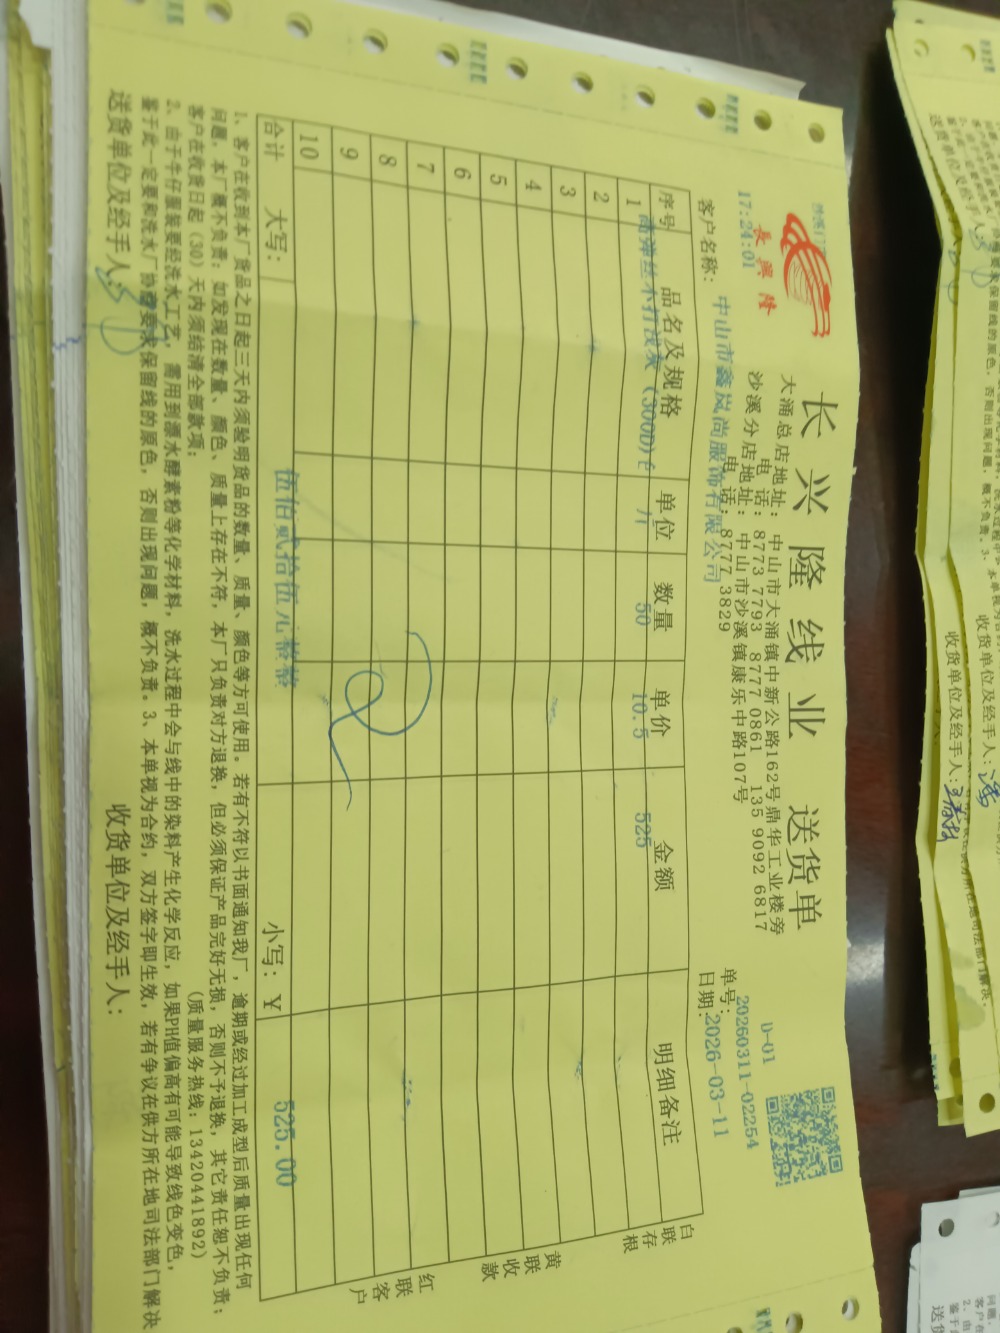 长兴隆线业 送货单
長興隆
大涌总店地址：中山市大涌镇中新公路162号鼎华工业楼旁
电 话：8773 7793 8777 0861 135 9092 6817
沙溪分店地址：中山市沙溪镇康乐中路107号
电 话：8777 3829
17:24:01
D-01
单号：20260311-02254
客户名称：中山市鑫岚尚服饰有限公司
日期：2026-03-11
序号 品名及规格 单位 数量 单价 金额 明细备注
1 (300D) 斤 50 10.5 525
2
3
4
5
6
7
8
9
10
合计 大写：伍佰贰拾伍元整 小写：¥ 525.00
白联存根
黄联收款
红联客户
1、客户在收到本厂货品之日起三天内须验明货品的数量、质量、颜色等方可使用。若有不符以书面通知我厂，逾期或经过加工成型后质量出现任何
问题，本厂概不负责；如发现在数量、颜色、质量上存在不符，本厂只负责对方退换，但必须保证产品完好无损，否则不予退换，其它责任恕不负责；
客户在收货日起（30）天内须结清全部款项；
(质量服务热线：13420441892)
2、由于牛仔服装要经洗水工艺，需用到漂水酵素粉等化学材料，洗水过程中会与线中的染料产生化学反应，如果PH值偏高有可能导致线色变色，
鉴于此一定要和洗水厂协商要求保留线的原色，否则出现问题，概不负责。3、本单视为合约，双方签字即生效，若有争议在供方所在地司法部门解决
送货单位及经手人：
收货单位及经手人：
收货单位及经手人：
收货单位及经手人：